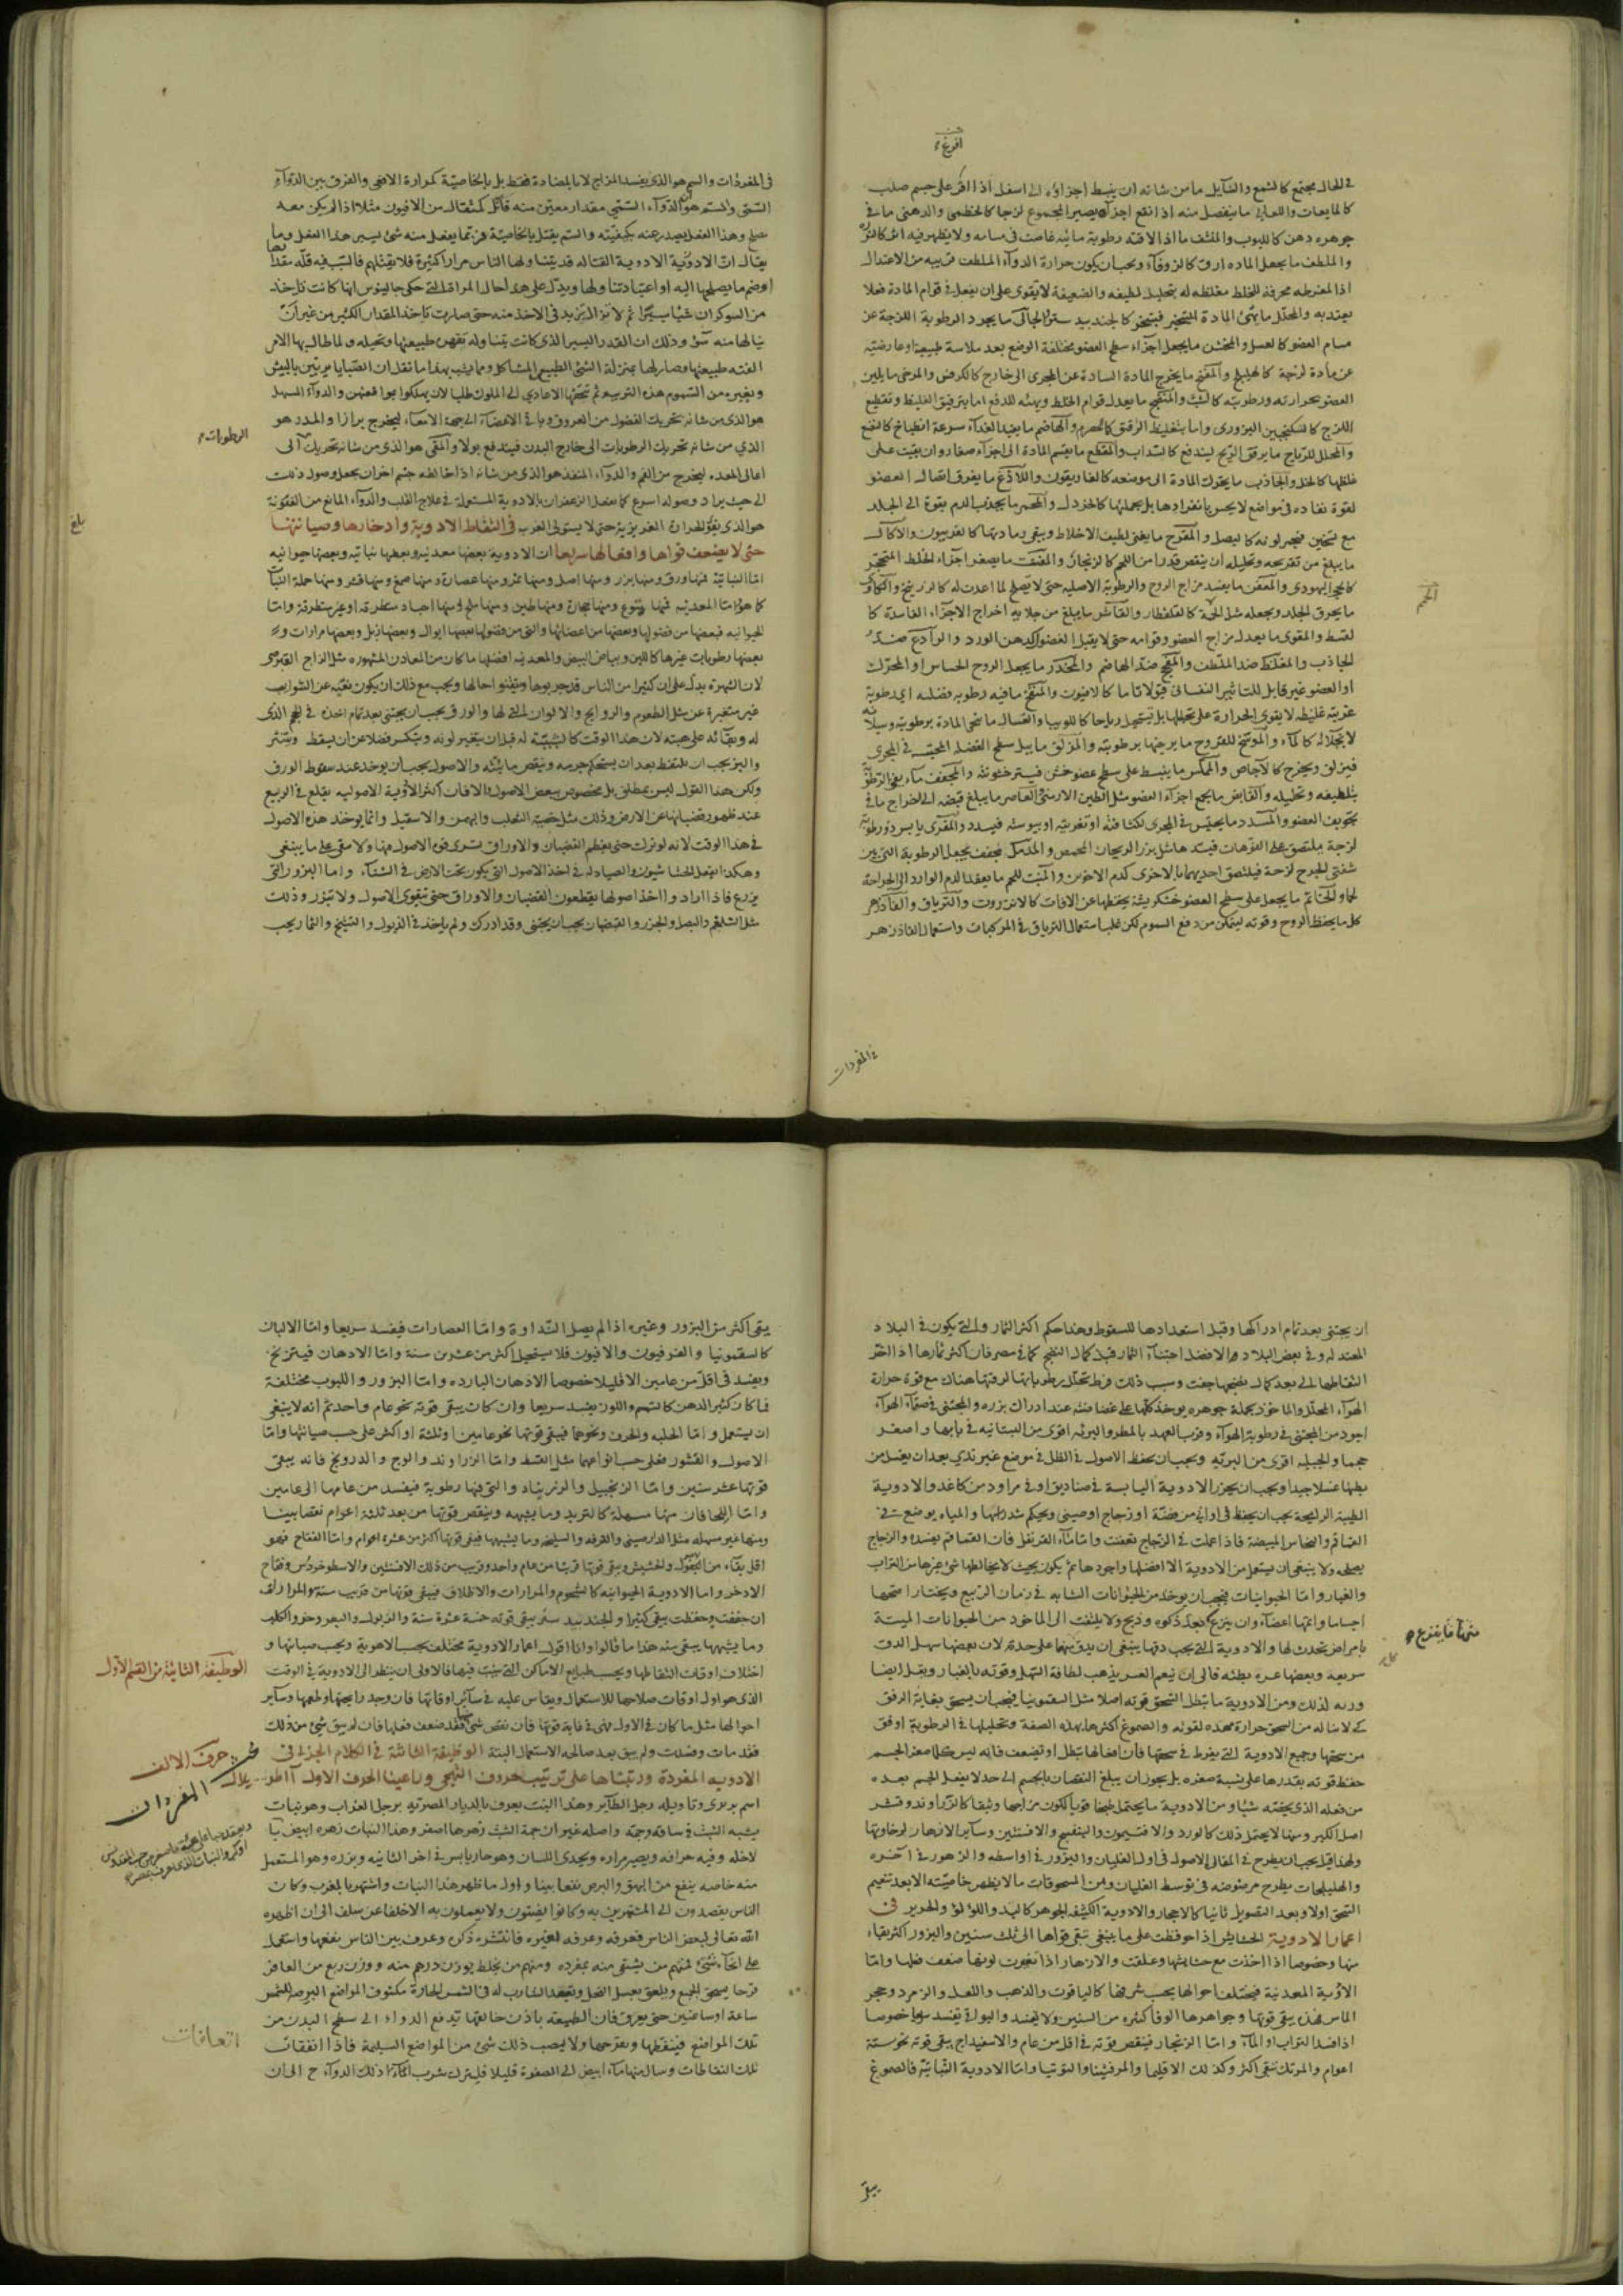 في الحال مجتمع كالشمع والسايل ما من شانه ان ينبسط اجزاؤه الى اسفل اذا افرغ على جسم صلب
كالمايعات واللعابي ما ينفصل منه اذا انقع اجزاء يصير المجموع لزجا كالخطمى والدهنى ما في
جوهره دهن كاللبوب والمنشف ما اذا لاقته رطوبة مائيه غاصت في مسامه ولا يظهر فيه اثر كالنوره
والملطف ما يجعل الماده ارق كالزوفاء ويجب ان يكون حرارة الدواء الملطف قريبه من الاعتدال
اذ المفرطه محرقة للخلط مغلظه له بتحليل لطيفه والضعيفة لا يقوى على ان يفعل في قوام المادة فعلا
يعتد به والمحلل ما يهيئ المادة للتبخير فيتبخر كالجندبيدستر والجالى ما يجرد الرطوبة اللزجة عن
مسام العضو كالعسل والمخشن ما يجعل اجزاء سطح العضو مختلفة الوضع بعد ملاسة طبيعية او عارضيه
عن مادة لزجة كالهليلج والمفتح ما يخرج المادة السادة عن المجرى الى خارج كالكرفس والمرخى ما يلين
العضو بحرارته ورطوبته كالشبث والمنضج ما يعدل قوام الخلط ويهيئه للدفع اما بترقيق الغليظ وتقطيع
اللزج كالسكنجبين البزورى واما بتغليظ الرقيق والهاضم ما يفيد الغذاء سرعة انطباخ
والمحلل للرياح ما يرقق الريح ليندفع كالسداب والمقطع ما يقسم المادة الى اجزاء صغار وان بقيت على
غلظها كالخل والجاذب ما يحرك المادة الى موضعه كالغاريقون واللاذع ما يفرق اتصال العضو
لقوة نفاده في مواضع لا يحس بانفرادها بل بجملتها كالخردل والمحمر ما يجذب الدم بقوة الى الجلد
مع تسخين فيحمر لونه كالبصل والمقرح ما يفنى لطيف الاخلاط ويبقى رماديتها كالفربيون والاكال
ما يبلغ من تقريحه وتحليله ان ينقص قدرا من اللحم كالزنجار والمفتت ما يصغر اجزاء الخلط المتحجر
كالحجر اليهودى والمعفن ما يفسد مزاج الروح والرطوبة الاصليه حتى لا تصلح لما اعدت له كالزرنيخ والكاوى
ما يحرق الجلد ويجعله مثل الحممة كالقلقطار والقاشر ما يبلغ من جلايه اخراج الاجزاء الفاسدة كا
لقسط والمقوى ما يعدل مزاج العضو وقوامه حتى لا يقبل الفضول كدهن الورد والرادع ضد
الجاذب والمغلظ ضد الملطف والمفجج ضد الهاضم والمخدر ما يجعل الروح الحساس او المحرك
او العضو غير قابل للتاثير النفسانى قبولا تاما كالافيون والمنفخ ما فيه رطوبه فضليه اى رطوبة
غريبة غليظه لا يقوى الحرارة على تحليلها بل تستحيل رياحا كاللوبيا والغسال ما ينحى المادة برطوبته وسيلانه
لا بجلائه كالماء والموسخ للقروح ما يرخيها برطوبته والمزلق ما يبل سطح الفضله المحتبسه في المجرى
فيزلق ويخرج كالاجاص والمملس ما ينبسط على سطح عضو خشن فيستر خشونته والمجفف ما يفنى الرطوبة
بتلطيفه وتحليله والقابض ما يجمع اجزاء العضو مثل الطين الارمنى والعاصر ما يبلغ قبضه الى اخراج ما في
تجويف العضو والمسدد ما يحتبس في المجرى لكثافته او تغريته او يبوسته فيسدد والمغرى يابس ذو رطوبة
لزجة يلتصق على الفوهات فيسدها مثل بزر الريحان المحمص والمدمل مجفف يجعل الرطوبة التى بين
شفتى الجرح لزجة فيلتصق احديهما بالاخرى كدم الاخوين والمنبت للحم ما يعقد الدم الوارد الى الجراحة
لحما والخاتم ما يجعل على سطح العضو خشكريشة يحفظها عن الافات كالانزروت والترياق والفادزهر
كل ما يحفظ الروح وقوته ليتمكن من دفع السموم لكن غلب استعمال الترياق في المركبات واستعمال الفادزهر
في المفردات
في المفردات والسم هو الذى يفسد المزاج لا بالمضادة فقط بل بالخاصية كمرارة الافعى والفرق بين الدواء
السمى والسم هو ان الدواء السمى مقدار معين منه قاتل كمثقال من الافيون مثلا اذا لم يكن معه
مصلح وهذا الفعل يصدر عنه بكيفيته والسم يقتل بالخاصية فربما يفعل منه شئ يسير هذا الفعل وما
يقال ان الادوية القتاله قد يتناولها الناس مرارا كثيرة فلا يقتلهم فالسبب فيه قلة مقدارها
او ضم ما يصلحها اليه او اعتياد تناولها ويدل على هذا حال المراة التى حكى جالينوس انها كانت تاخذ
من الشوكران شيئا يسيرا ثم لا تزال تزيد في الاخذ منه حتى صارت تاخذ المقدار الكثير من غير ان
ينالها منه سوء وذلك ان القدر اليسير الذى كانت يتناوله تقهره طبيعتها وتحيله ولما طال بها الامر
الفته طبيعتها وصار لها بمنزلة الشئ الطبيعى المشاكل ومما يشبه بهذا ما نقل ان الصبايا يربين بالبيش
وبغيره من السموم هذه التربيه ثم تتحفها الاعادى الى الملوك طلبا لان يهلكوا بمواقعتهن والدواء المسهل
هو الذى من شانه تحريك الفضول من العروق وباقى الاعضاء الى جهة الامعاء ليخرج برازا والمدر هو
الذى من شانه تحريك الرطوبات الى خارج البدن فيندفع بولا والمقى هو الذى من شانه تحريك الى
الرطوبات
اعالى المعده ليخرج من الفم والدواء المنفذ هو الذى من شانه اذا خالطه جسم اخر ان يجعل وصول ذلك
الى حيث يراد وصوله اسرع كما يفعل الزعفران بالادوية المستعملة في علاج القلب والدواء المانع من العفونة
هو الذى يقوى الحرارة الغريزية حتى لا يستولى الغريب في التقاط الادوية وادخارها وصيانتها
بلغ
حتى لا يضعف قواها وافعالها سريعا ان الادوية بعضها معدنيه وبعضها نباتيه وبعضها حيوانيه
اما النباتية فمنها ورق ومنها بزر ومنها اصل ومنها ثمر ومنها عصارة ومنها صمغ ومنها قشر ومنها جملة النبات
كما هو اما المعدنيه فمنها ينبوع ومنها حجارة ومنها طين ومنها ملح ومنها اجساد منطرقة او غير منطرقة واما
الحيوانيه فبعضها من فضولها وبعضها من اعضائها والتى من فضولها بعضها ابوال وبعضها زبل وبعضها مرارات و
بعضها رطوبات غيرها كاللبن وبياض البيض والمعدنيه افضلها ما كان من المعادن المشهوره مثل الزاج القبرصى
لان الشهرة يدل على ان كثيرا من الناس قد جربوها وتيقنوا حالها ويجب مع ذلك ان يكون نقيه عن الشوايب
غير متغيرة عن مثل الطعوم والروايح والالوان التى لها والورق يجب ان يجتنى بعد تمام اخذه في الحجم الذى
له وبقائه على هيئته لان هذا الوقت كالشبيبة له قبل ان يتغير لونه وينكسر فضلا عن ان يسقط وينتثر
والبزر يجب ان يلتقط بعد ان يستحكم جرمه وينقص مائيته والاصول يجب ان يوخذ عند سقوط الورق
ولكن هذا القول ليس بمطلق بل مخصوص ببعض الاصول والا فان اكثر الادوية الاصوليه يقلع في الربيع
عند ظهور قضبانها عن الارض وذلك مثل خصى الثعلب والبهمن والاسقيل وانما يوخذ هذه الاصول
في هذا الوقت لانه لو ترك حتى يعظم القضبان والاوراق تسرى قوى الاصول منها ولا تبقى على ما ينبغى
وهكذا يفعل الحشايشيون والصيادلة في اخذ الاصول التى يكون تحت الارض في الشتاء واما البزور التى
يزرع فاذا ارادوا اخذ اصولها يقطعون القضبان والاوراق حتى يقوى الاصول ولا تبزر وذلك
مثل الشلغم والبصل والجزر والقضبان يجب ان يجتنى وقد ادرك ولم ياخذ في الذبول والتشنج والثمار يجب
ان يجتنى بعد تمام ادراكها وقبل استعدادها للسقوط وهذا حكم اكثر الثمار والتى يكون في البلاد
المعتدله وفي بعض البلاد والافضل اجتناء الثمار قبل كمال النضج كما في مصر فان اكثر ثمارها اذا اخر
التقاطها الى بعد كمال نضجها جفت وسبب ذلك فرط تحلل رطوباتها لرقتها هناك مع قوة حرارة
الهواء المحلل والماخوذ بجملة جوهره يوخذ كلها على غضاضته عند ادراك بزره والمجتنى في صفاء الهواء
اجود من المجتنى في رطوبة الهواء وقرب العهد بالمطر والبريه اقوى من البستانيه في بابها واصغر
حجما والجبليه اقوى من البريه ويجب ان يحفظ الاصول في الظل في موضع غير ندى بعد ان يغسل من
طينها غسلا جيدا ويجب ان يحرز الادوية اليابسة في صناديق او في مزاود من كاغد والادوية
الطيبة الرايحة يجب ان يحفظ في اوانى من فضة او زجاج او صينى ويحكم شد راسها والمياه يوضع في
القماقم والنحاس المبيضة فاذا عملت في الزجاج تعفنت واما ماء القرنفل فان القماقم يفسده والزجاج
يصلحه ولا ينبغى ان يستعمل من الادوية الا افضلها واجودها ثم يكون بحيث لا يخالطها شئ غيرها من التراب
والغبار واما الحيوانيات فيجب ان يوخذ من الحيوانات الشابه في زمان الربيع ويختار اصحها
اجساما واتمها اعضاء وان ينزع بعد ذكوه وذبح ولا يلتفت الى الماخوذ من الحيوانات الميتة
بامراض تحدث لها والادوية التى يجب دقها ينبغى ان يدق بها على حدة لان بعضها سهل الدق
سريعه وبعضها عسره بطئه فالى ان ينعم العسر يذهب لطافة السهل وقوته بالغبار ويقل ايضا
وزنه لذلك ومن الادوية ما يبطل السحق قوته اصلا مثل السقمونيا فيجب ان يسحق بغاية الرفق
كى لا يناله من السحق حرارة مفسده لقوته والصموغ اكثرها بهذه الصفة وتحليلها في الرطوبة اوفق
من سحقها وجميع الادوية التى يفرط في سحقها فان افعالها تبطل او تضعف فانه ليس كلما صغر الجسم
حفظ قوته بقدرها على نسبة صغره بل يجوز ان يبلغ النقصان بالجسم الى حد لا يفعل الجسم بعده
من فعله الذى يخصه شيئا ومن الادوية ما يحتمل طبخا قويا لكون مزاجها وثيقا كالزراوند وقشر
اصل الكبر ومنها لا يحتمل ذلك كالورد والافتيمون والبنفسج والافسنتين وساير الازهار لرخاوتها
ولهذا قيل يجب ان يطرح في المغالى الاصول في اول الغليان والبزور في اواسطه والزهور في اخره
والهليلجات يطرح مرضوضه في توسط الغليان ومن المسحوقات ما لا يظهر خاصيته الا بعد تنعيم
السحق اولا وبعد التصويل ثانيا كالاحجار والادوية الكثيفه الجوهر كالبسد واللؤلؤ والحرير في
اعمار الادوية الحشايش اذا حوفظت على ما ينبغى تبقى قواها الى ثلث سنين والبزور اكثر بقاء
منها وخصوصا اذا اخذت مع حشايشها وعلقت والازهار اذا تغيرت لونها ضعف فعلها واما
الادوية المعدنية فيختلف احوالها بحسب شرفها كالياقوت والذهب واللعل والزمرد وحجر
الماس فهذه يبقى قوتها وجواهرها الوفا كثيره من السنين ولا يفسد والبواقى تفسد سريعا خصوصا
اذا اصابه التراب او الماء واما الزنجار فينقص قوته في اقل من عام والاسفيداج يبقى قوته نحو ستة
اعوام والمرتك يبقى اكثر وكذلك الاقليميا والمرقشيثا والتوتيا واما الادوية النباتية فالصموغ
يبقى اكثر من البزور وغيره اذا لم يصل النداوة واما العصارات فيفسد سريعا واما الالبان
كالسقمونيا والفرفيون والافيون فلا يستحيل اكثر من عشرين سنة واما الادهان فيتزنخ
ويفسد في اقل من عامين الا قليلا خصوصا الادهان البارده واما البزور واللبوب مختلفة
فما كان كثير الدهن كالسمسم واللوز يفسد سريعا وان كان يبقى قوته نحو عام واحد ثم انه لا ينبغى
ان يستعمل واما الحلبه والحرف ونحوهما فيبقى قوتها نحو عامين او ثلثة او اكثر على حسب صيانتها واما
الاصول والقشور فعلى حسب انواعها مثل القسط واما الزراوند والوج والدرونج فانه يبقى
قوتها عشر سنين واما الزنجبيل والزرنباد والتى فيها رطوبة فيفسد من عامها الى عامين
واما اللحا فان منها مسهلة كالتربد وما يشبهه وينقص قوتها من بعد ثلثة اعوام نقصا بينا
ومنها غير مسهله مثل الدارصينى والقرفه والسليخه وما يشبهها فيبقى قوتها اكثر من عشرة اعوام واما الفقاح فهو
اقل بقاء من البقول والحشيش ويبقى قوتها قريبا من عام واحد وقريب من ذلك الافسنتين والاسطوخودس وفقاح
الاذخر واما الادوية الحيوانيه كالشحوم والمرارات والاظلاف فيبقى قوتها من قريب سنة والمرا
ان جففت وحفظت يبقى كثيرا والجندبيدستر يبقى قوته خمسة عشرة سنة والزبول والبعر وخرو الكلب
وما يشبهها يبقى سنه هذا ما قالوا وانا اقول اعمار الادوية مختلف بحسب الاهوية وبحسب صيانتها و
الوظيفة الثانية من القسم الاول
اختلاف اوقات التقاطها وبحسب طبايع الاماكن التى نبتت فيها فالاولى ان ينظر الى الادوية في الوقت
الذى هو اول اوقات صلاحها للاستعمال ويقاس عليه في سائر اوقاتها فان وجد رايحتها وطعمها وساير
احوالها مثل ما كان في الاول فهى في غاية قوتها فان نقص شئ فقد ضعف فعلها فان لم يبق شئ من ذلك
فقد مات وفسدت ولم يبق بعد صالحه الاستعمال البتة الوظيفة الثانية في الكلام الجزئى في
حرف الالف
الادويه المفردة ورتبناها على ترتيب حروف التهجى وراعينا الحرف الاول آاطريلال
المفردات
اسم بربرى وتاويله رجل الطائر وهذا النبت يعرف بالديار المصريه برجل الغراب وهو نبات
يشبه الشبث في ساقه وجمته واصله غير ان جمة الشبث زهرها اصفر وهذا النبات زهره ابيض
لاخله وفيه حرافه ويصير مراره ويحذى اللسان وهو حار يابس في اخر الثانيه وبزره وهو المستعمل
منه خاصه ينفع من البهق والبرص نفعا بينا واول ما ظهر هذا النبات واشتهر بالمغرب وكان
الناس يقصدون الى المشتهرين به وكانوا يضنون ولا يعملون به الا خلفا عن سلف الى ان اظهره
الله تعالى لبعض الناس فعرفه وعرفه لغيره فانتشر ذكره وعرف بين الناس نفعها واستعمل
على انحاء شتى فمنهم من يسقى منه بمفرده ومنهم من يخلط بوزن درهم منه ووزن ربع من العاقر
قرحا يسحق الجميع ويلعق بعسل النحل ويقعد الشارب له في الشمس الحارة مكشوف المواضع البرصه للشمس
ساعة او ساعتين حتى يعرق فان الطبيعة باذن خالقها تدفع الدواء الى سطح البدن من
تلك المواضع فينفطها ويقرحها ولا يصيب ذلك شئ من المواضع السليمة فاذا انفقات
تلك النفاطات وسال منها ماء ابيض الى الصفرة قليلا فليترك شرب ذلك الدواء ح الى ان